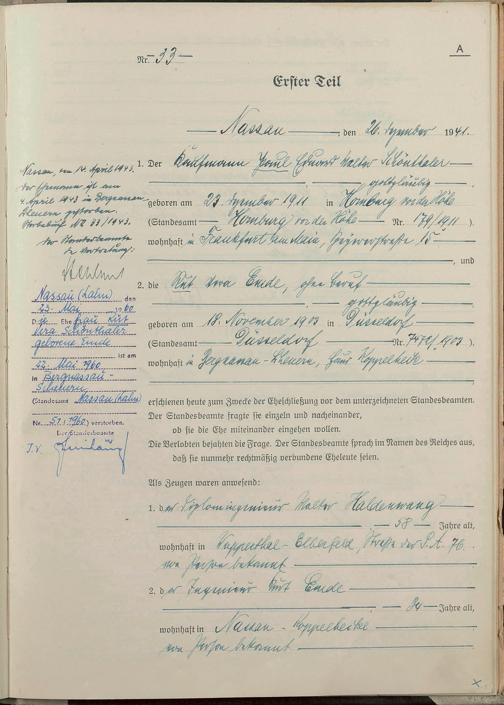 A
Nr. 33
Erster Teil
Nassau, den 26. Dezember 1941.
1. Der Kaufmann Paul Eduard Walter Schönthaler
gottgläubig
geboren am 23. Dezember 1911 in Homburg vor der Höhe
(Standesamt Homburg vor der Höhe Nr. 179/1911)
wohnhaft in Frankfurt am Main, 15
, und
2. die Rut Vera Emde, ohne Beruf
gottgläubig
geboren am 18. November 1903 in Düsseldorf
(Standesamt Düsseldorf Nr. 7472/1903)
wohnhaft in Bergnassau-Scheuern, Haus Koppelheide
erschienen heute zum Zwecke der Eheschließung vor dem unterzeichneten Standesbeamten.
Der Standesbeamte fragte sie einzeln und nacheinander,
ob sie die Ehe miteinander eingehen wollen.
Die Verlobten bejahten die Frage. Der Standesbeamte sprach im Namen des Reiches aus,
daß sie nunmehr rechtmäßig verbundene Eheleute seien.
Als Zeugen waren anwesend:
1. der Diplomingenieur Walter Haldenwang
38 Jahre alt,
wohnhaft in Wuppertal-Elberfeld, Straße der S.A. 76.
von Person bekannt
2. der Ingenieur Kurt Emde
Jahre alt,
wohnhaft in Nassau - Koppelheide
von Person bekannt
Nassau, am 14. April 1943.
Der Ehemann ist am
4. April 1943 in Bergnassau-
Scheuern gestorben.
Sterbebuch Nr. 33/1943.
Der Standesbeamte
In Vertretung:
Nassau (Lahn), den
23. Mai 1960
D ie Ehefrau Rut
Vera Schönthaler
geborene Emde
ist am
22. Mai 1960
in Bergnassau-
Scheuern
(Standesamt Nassau (Lahn)
Nr. 51/1960) verstorben.
Der Standesbeamte
I.V.